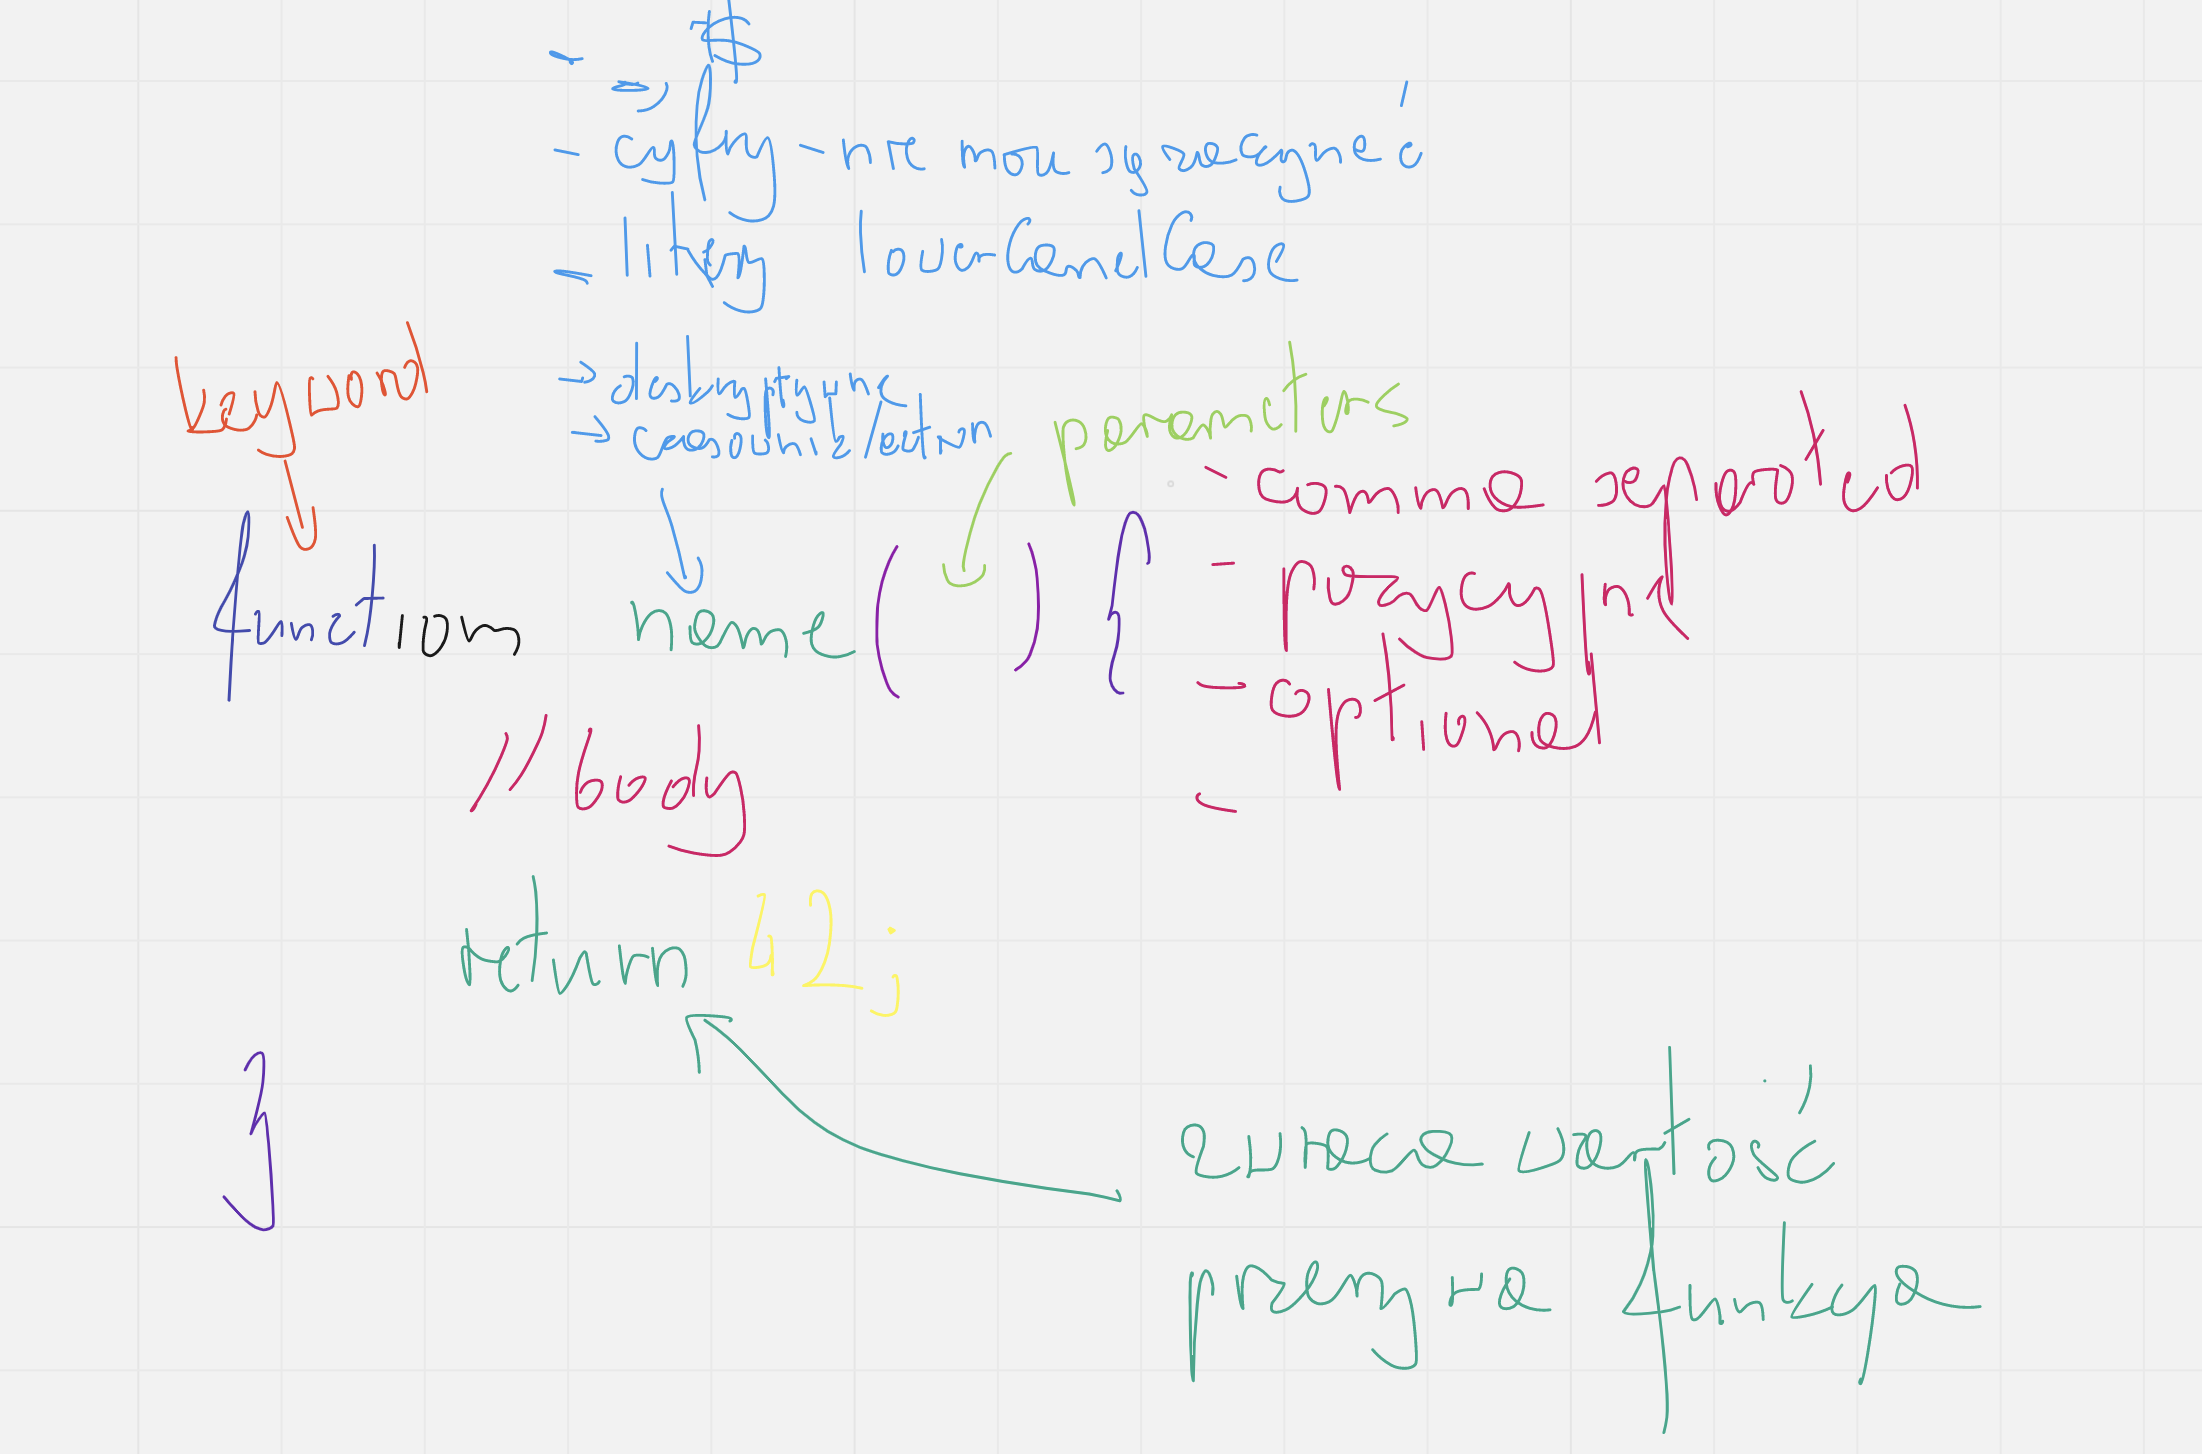 - _, $
- cyfry - nie może się zaczynać
- litery lowerCamelCase
keyword
→ deskryptywne
→ czasownik/action
parameters
- comma separated
function name ( ) {
- pozycyjne
- optional
-
// body
return 42;
}
zwraca wartość
przerywa funkcję